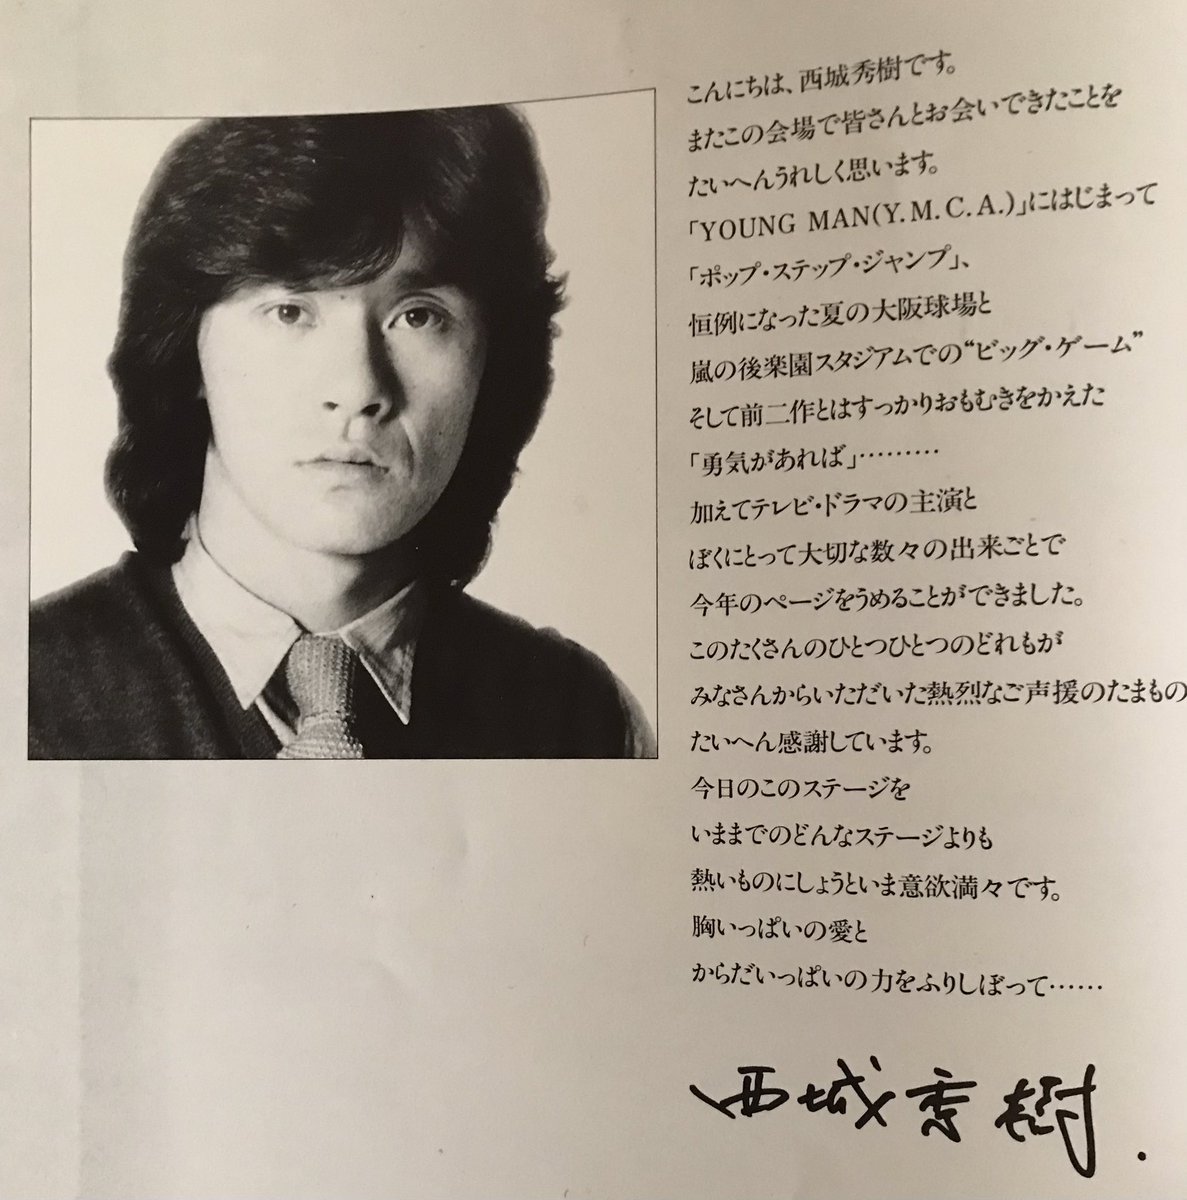 こんにちは、西城秀樹です。
またこの会場で皆さんとお会いできたことを
たいへんうれしく思います。
「YOUNG MAN(Y.M.C.A.)」にはじまって
「ホップ・ステップ・ジャンプ」、
恒例になった夏の大阪球場と
嵐の後楽園スタジアムでの“ビッグ・ゲーム”
そして前二作とはすっかりおもむきをかえた
「勇気があれば」………
加えてテレビ・ドラマの主演と
ぼくにとって大切な数々の出来ごとで
今年のページをうめることができました。
このたくさんのひとつひとつのどれもが
みなさんからいただいた熱烈なご声援のたまもの
たいへん感謝しています。
今日のこのステージを
いままでのどんなステージよりも
熱いものにしようといま意欲満々です。
胸いっぱいの愛と
からだいっぱいの力をふりしぼって……
西城秀樹.